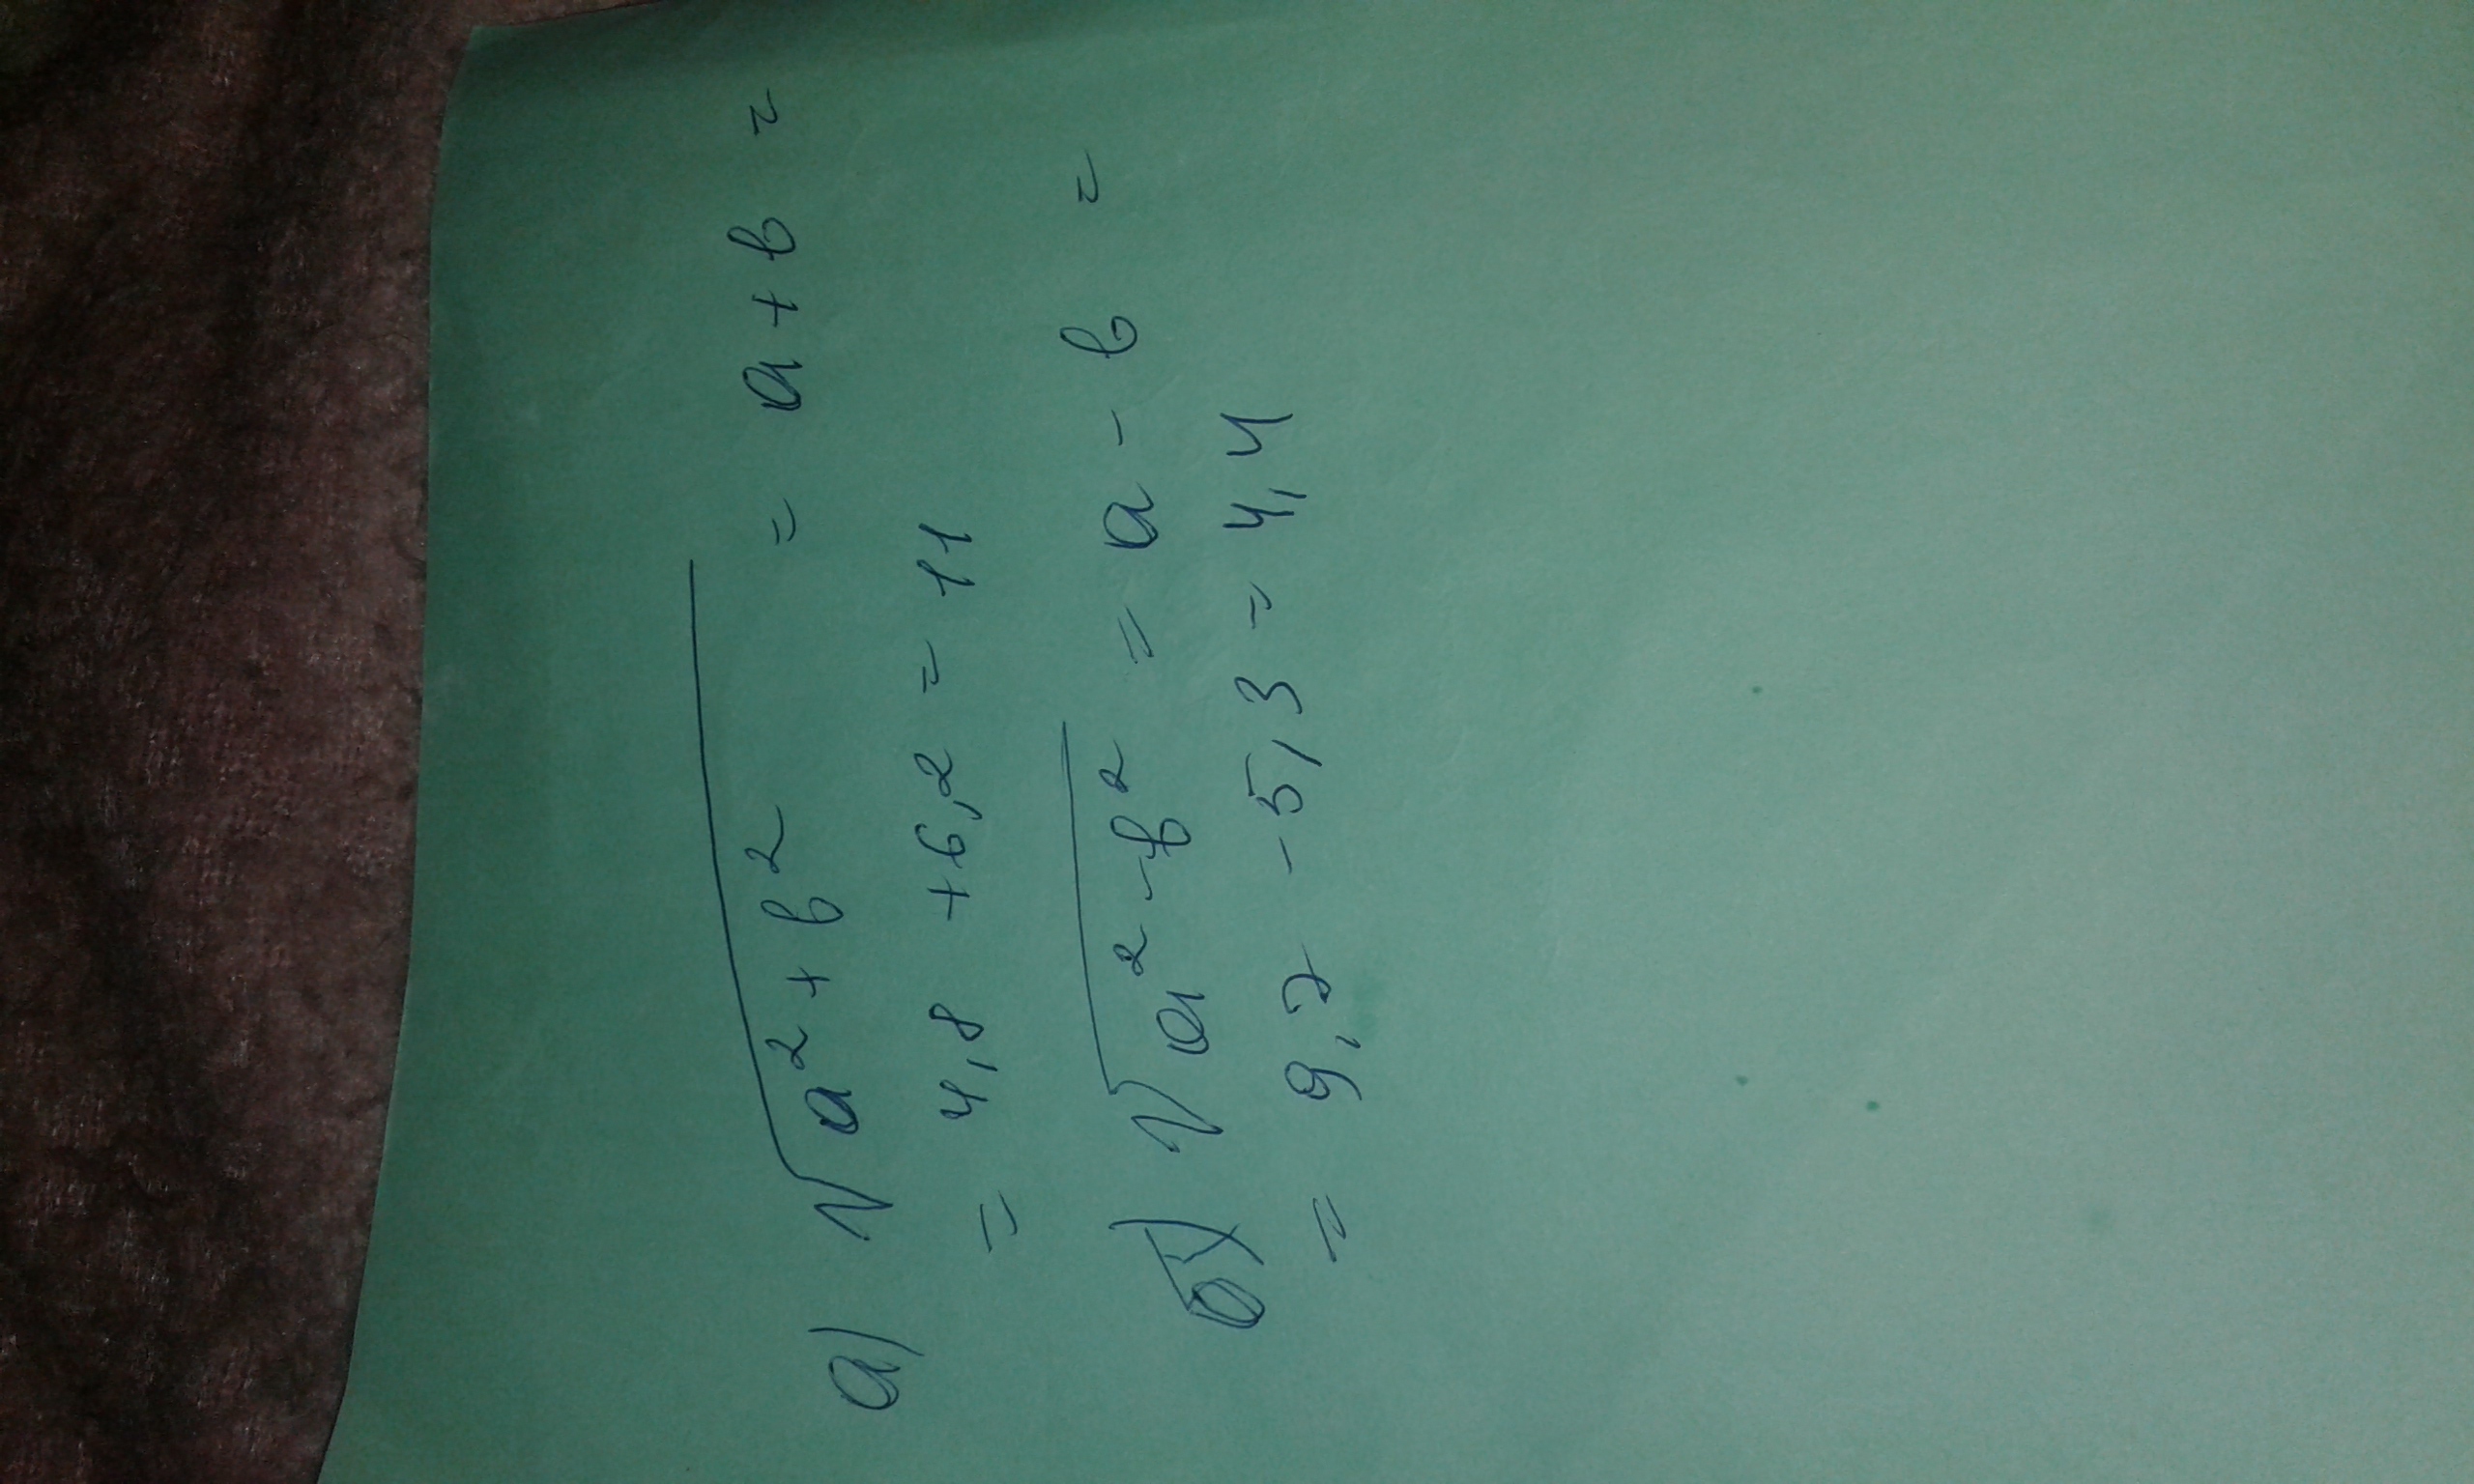 а) √a² + b² = a + b =
= 4,8 + 6,2 = 11
б) √a² - b² = a - b =
= 9,7 - 5,3 = 4,4